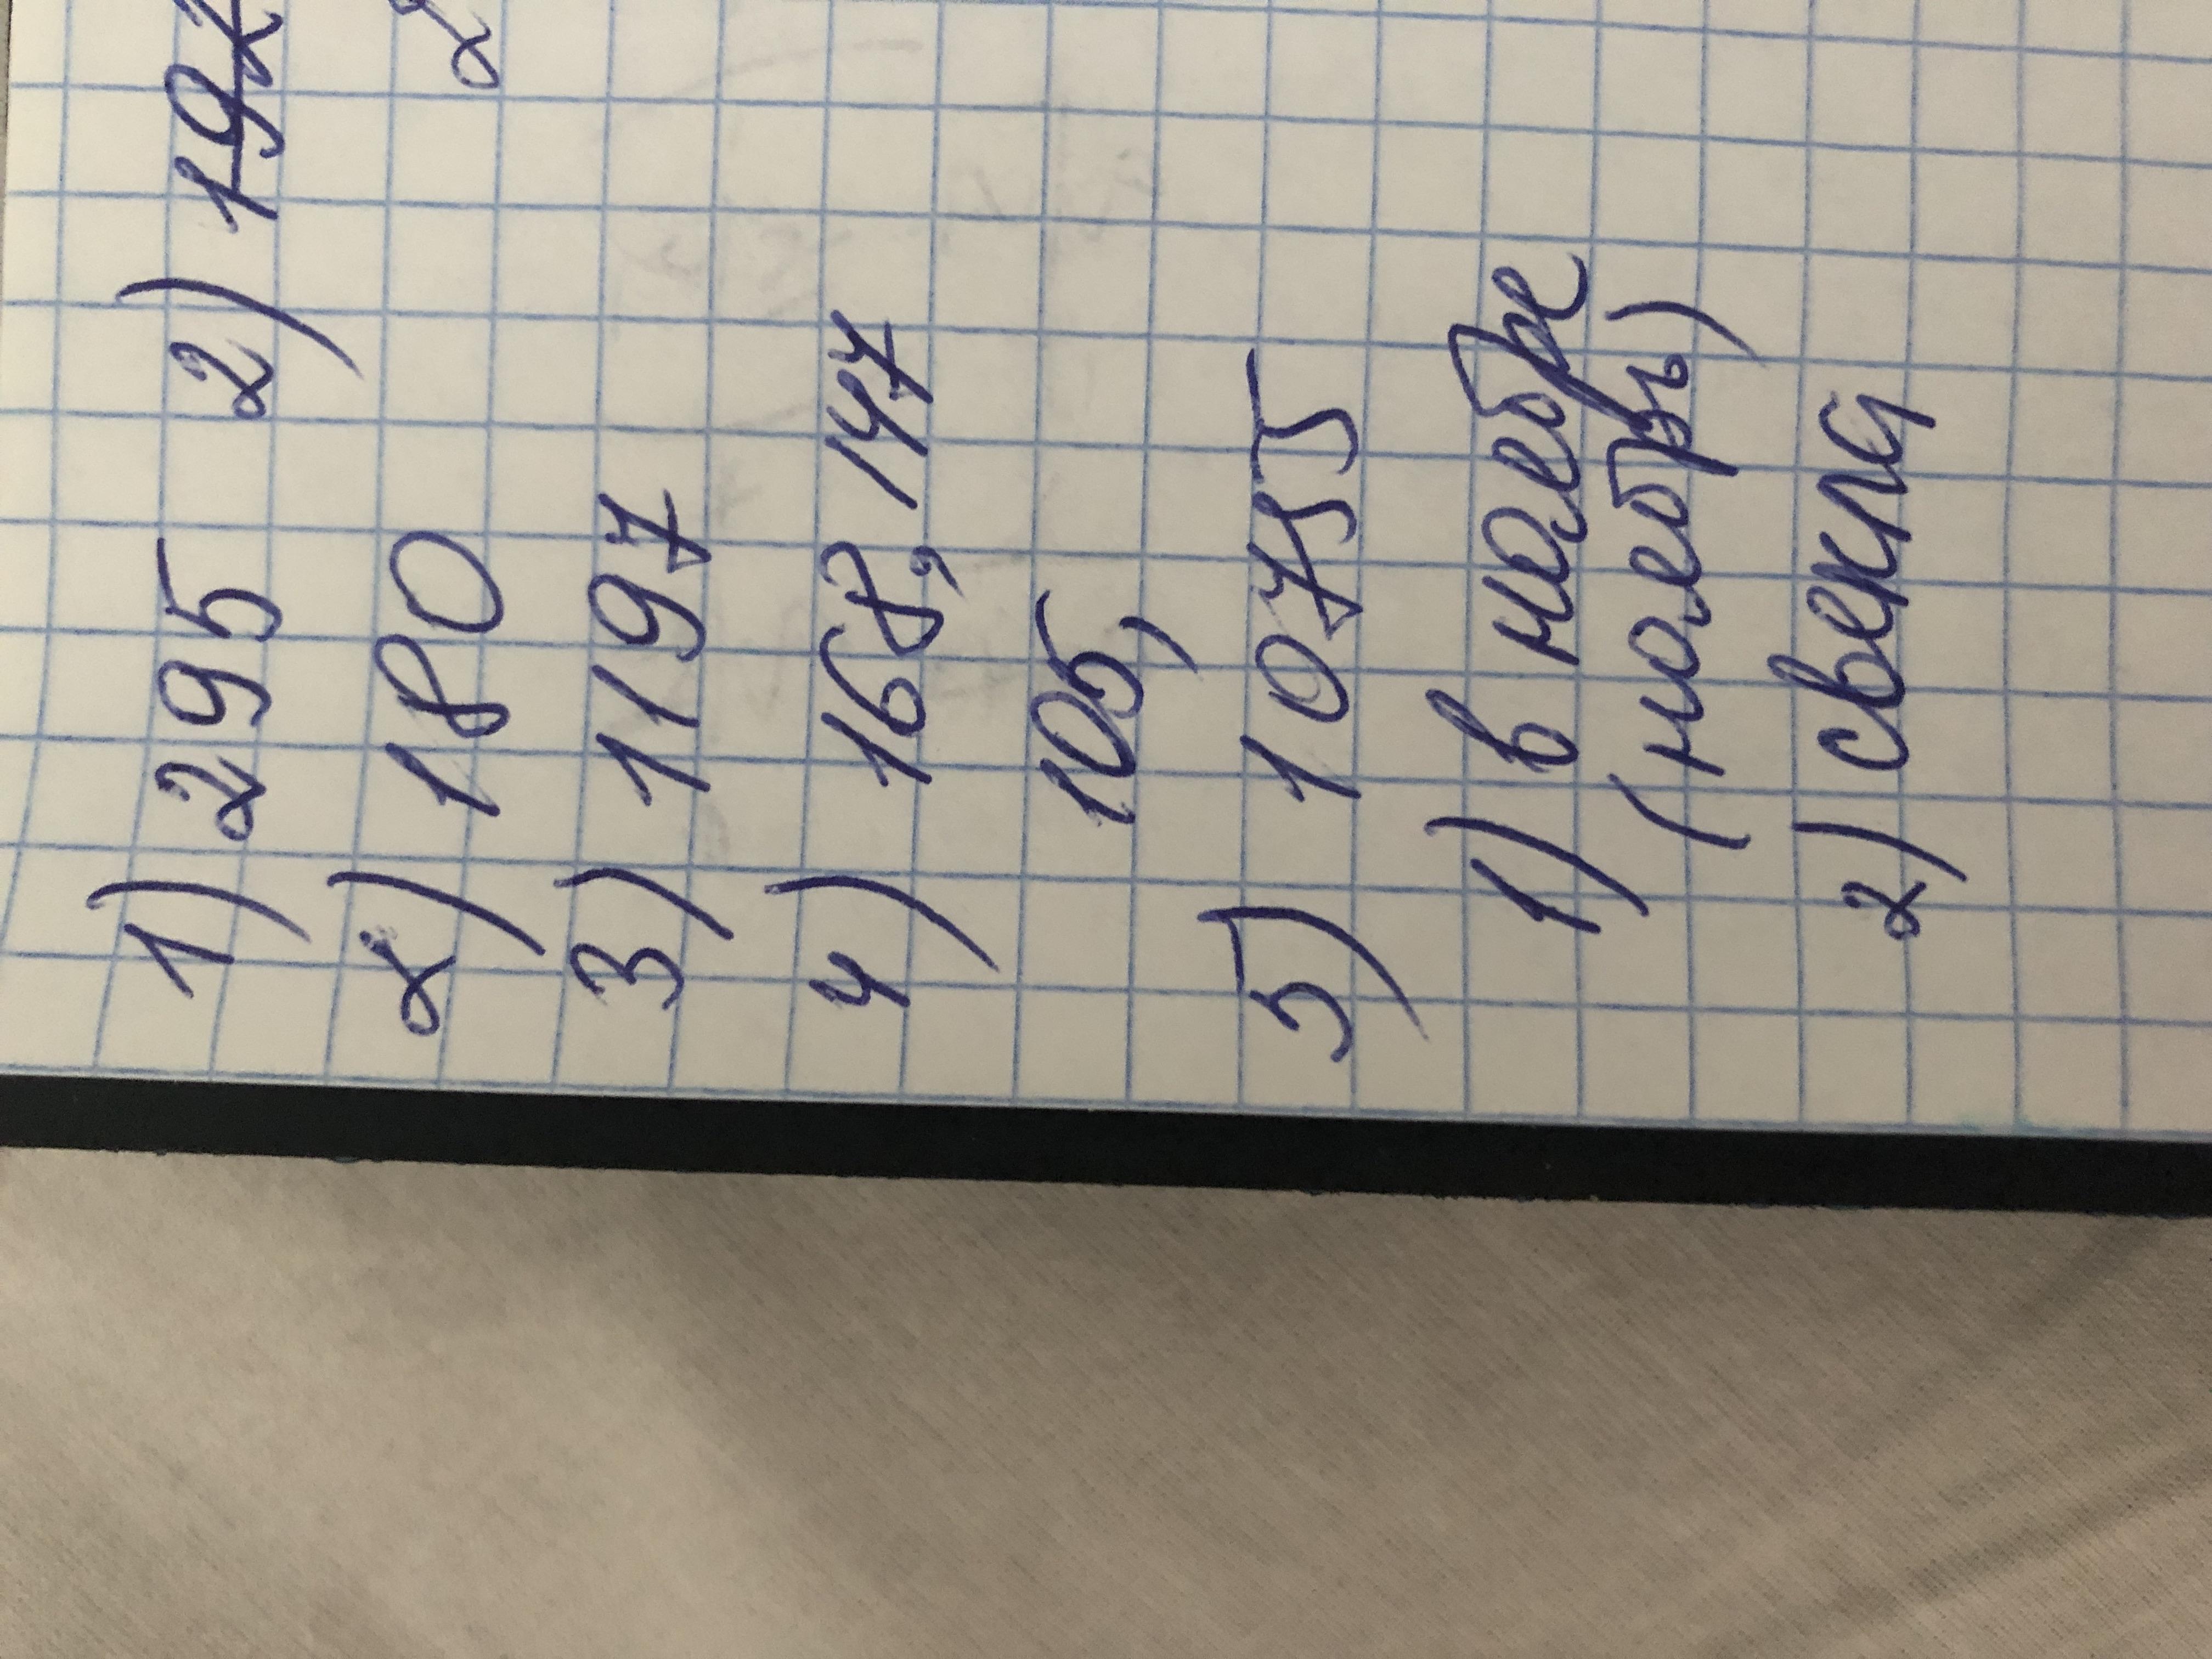 1) 295 2) 19
2) 180 2
3) 1197
4) 168, 147
105,
5) 10755
1) в ноябре
(ноябрь)
2) свекла